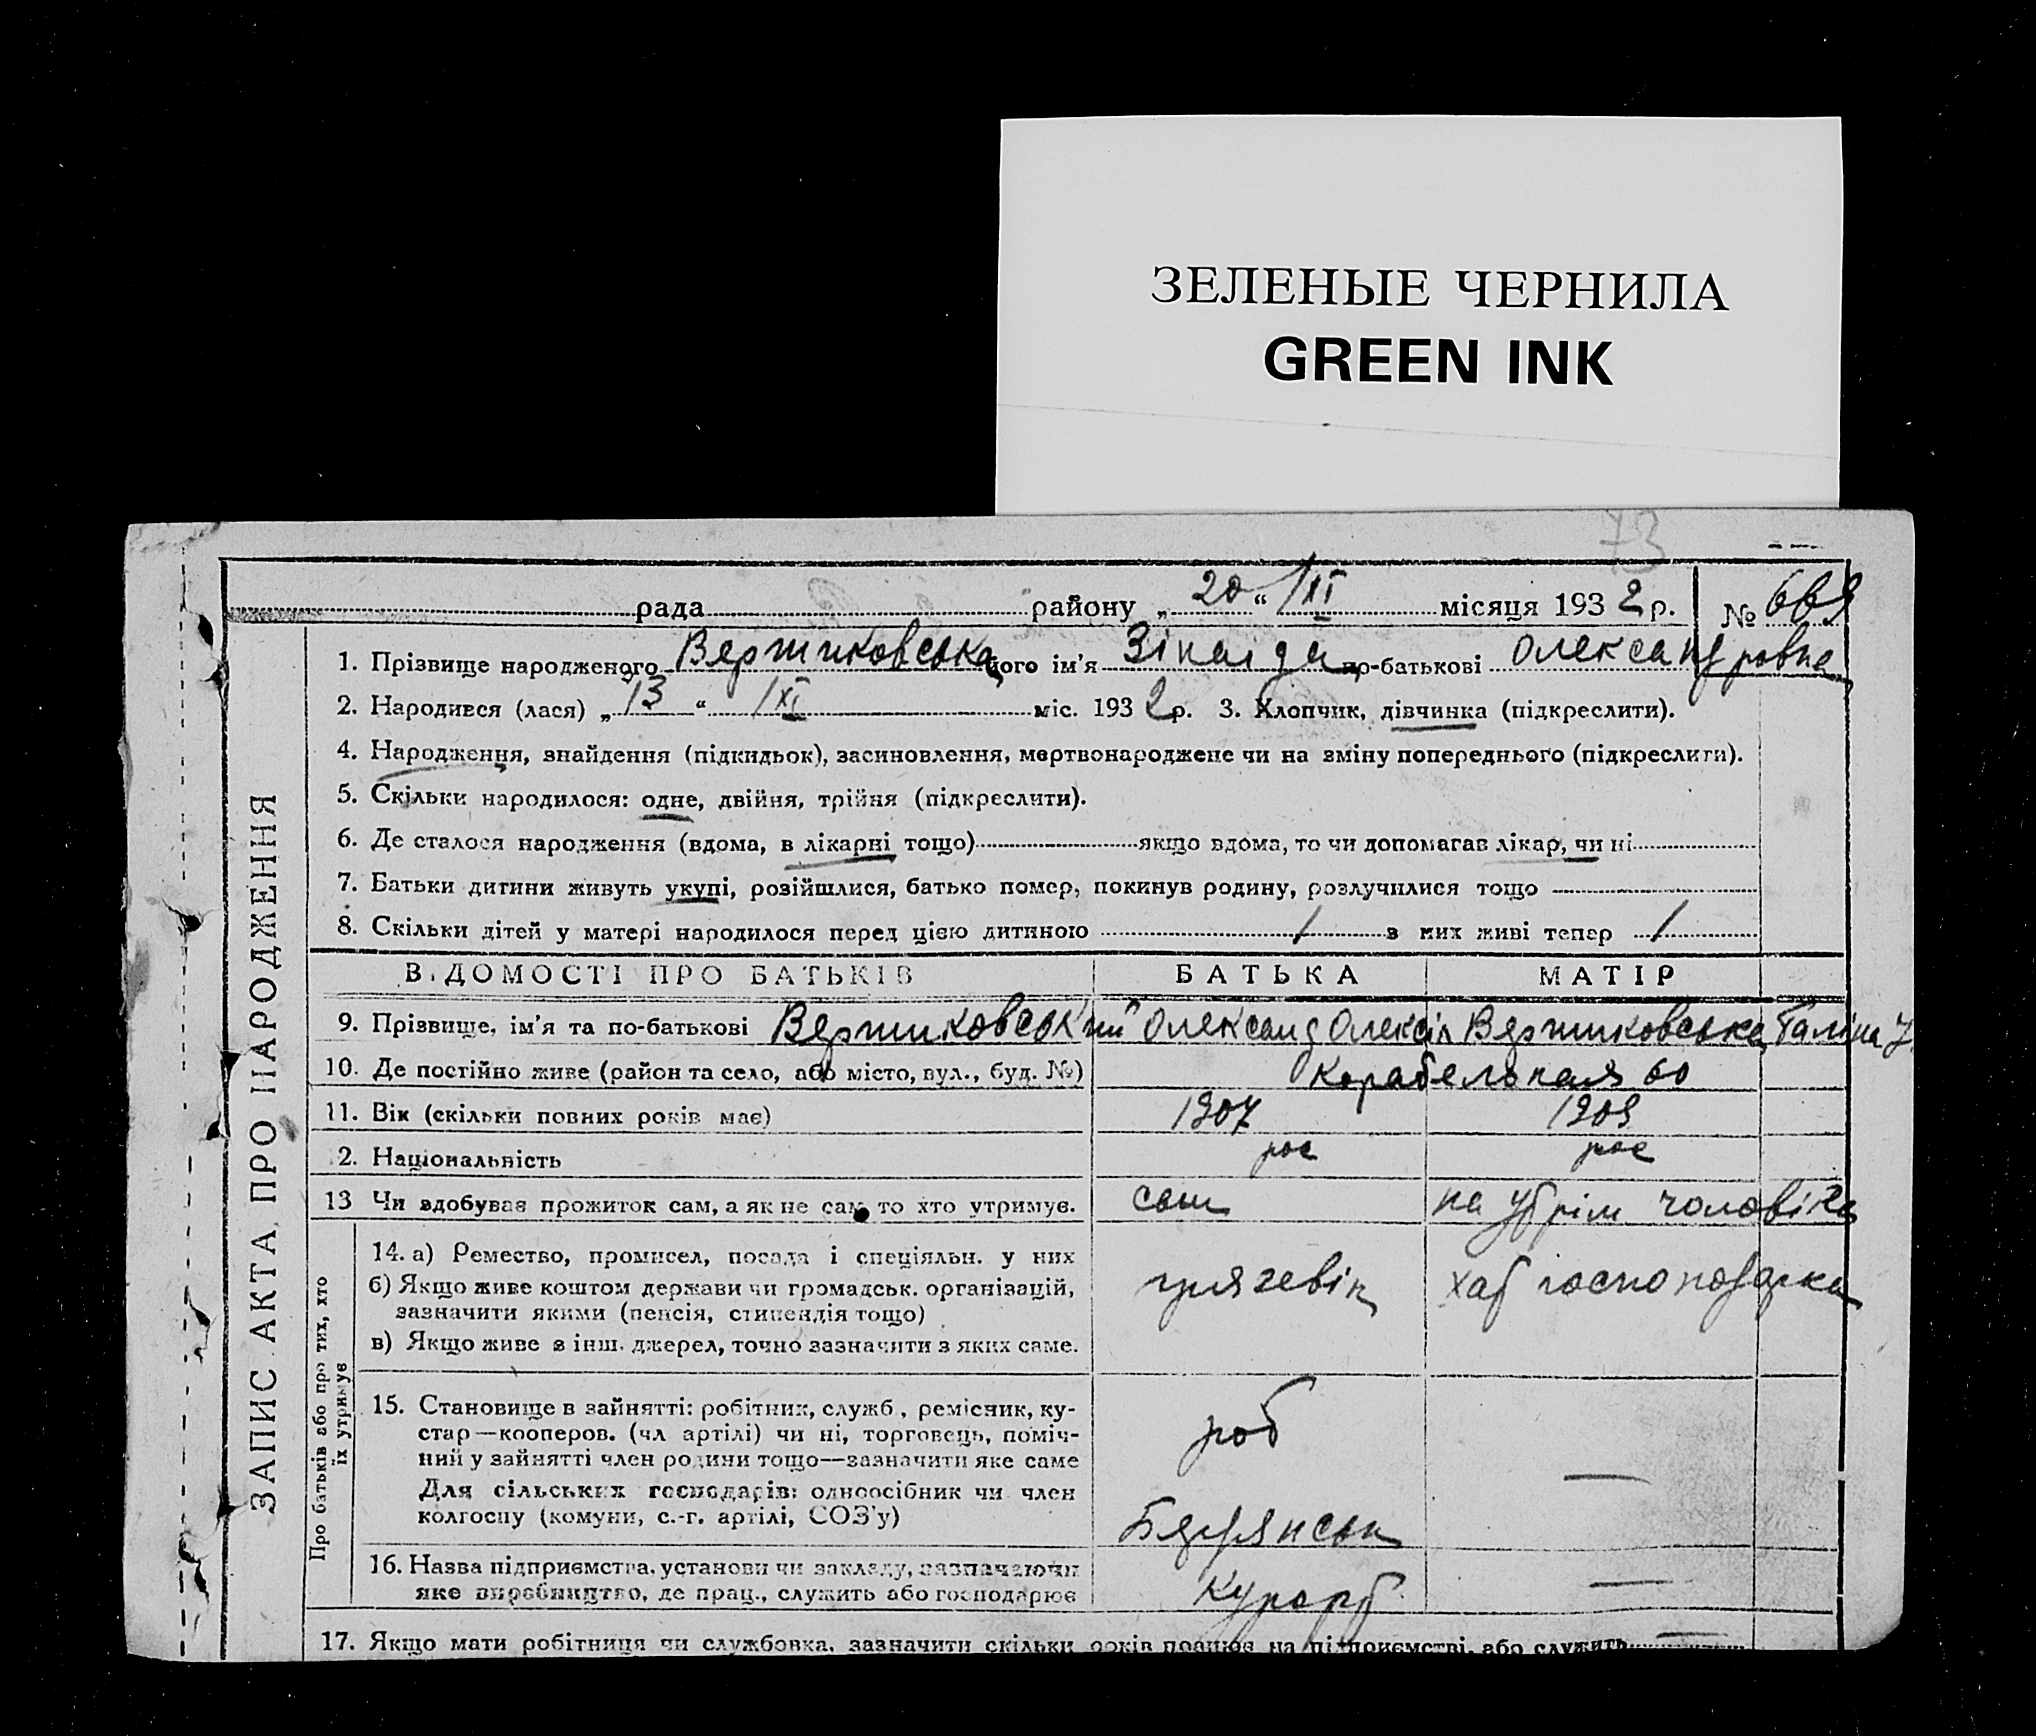 ЗЕЛЕНЫЕ ЧЕРНИЛА
GREEN INK
73
рада района „ 20 “ /XI місяця 1932 р. № 669
1. Прізвище народженого Вертиковська його ім'я Зінаїда по-батькові Олександровна
2. Народився (лася) „ 13 “ /XI міс. 1932 р. 3. Хлопчик, дівчинка (підкреслити).
4. Народження, знайдення (підкидьок), засиновлення, мертвонароджене чи на зміну попереднього (підкреслити).
5. Скільки народилося: одне, двійня, трійня (підкреслити).
6. Де сталося народження (вдома, в лікарні тощо) якщо вдома, то чи допомагав лікар, чи ні
7. Батьки дитини живуть укупі, розійшлися, батько помер, покинув родину, розлучилися тощо
8. Скільки дітей у матері народилося перед цією дитиною / з них живі тепер /
ВІДОМОСТІ ПРО БАТЬКІВ БАТЬКА МАТІР
9. Прізвище, ім'я та по-батькові Вертиковський Олександ Олексій Вертиковська Галіна
10. Де постійно живе (район та село, або місто, вул., буд. №) Корабельная 60
11. Вік (скільки повних років має) 1907 1909
2. Національність рос рос
13 Чи здобував прожиток сам, а як не сам то хто утримує. сам на утрім чоловіка
14. а) Ремество, промисел, посада і спеціяльн. у них
б) Якщо живе коштом держави чи громадськ. організацій, грязевік хат господарка
зазначити якими (пенсія, стипендія тощо)
в) Якщо живе з інш. джерел, точно зазначити з яких саме.
15. Становище в зайнятті: робітник, служб., ремісник, ку-
стар—кооперов. (чл артілі) чи ні, торговець, поміч- роб
ний у зайнятті член родини тощо—зазначити яке саме —
Для сільських господарів: одноосібник чи член
колгоспу (комуни, с.-г. артілі, СОЗ'у) Бердянськ
16. Назва підприємства, установи чи закладу, зазначаючи —
яке виробництво, де прац., служить або господарює Курорт
17. Якщо мати робітниця чи службовка, зазначити скільки років працює на підприємстві, або служить —
ЗАПИС АКТА ПРО НАРОДЖЕННЯ
Про батьків або про тих, хто
їх утримує